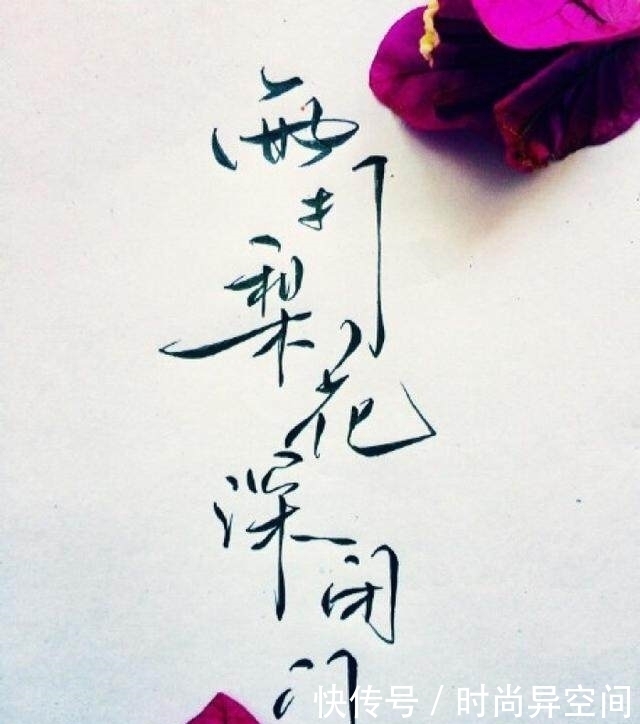 雨打梨花深闭门
快传号/时尚异空间